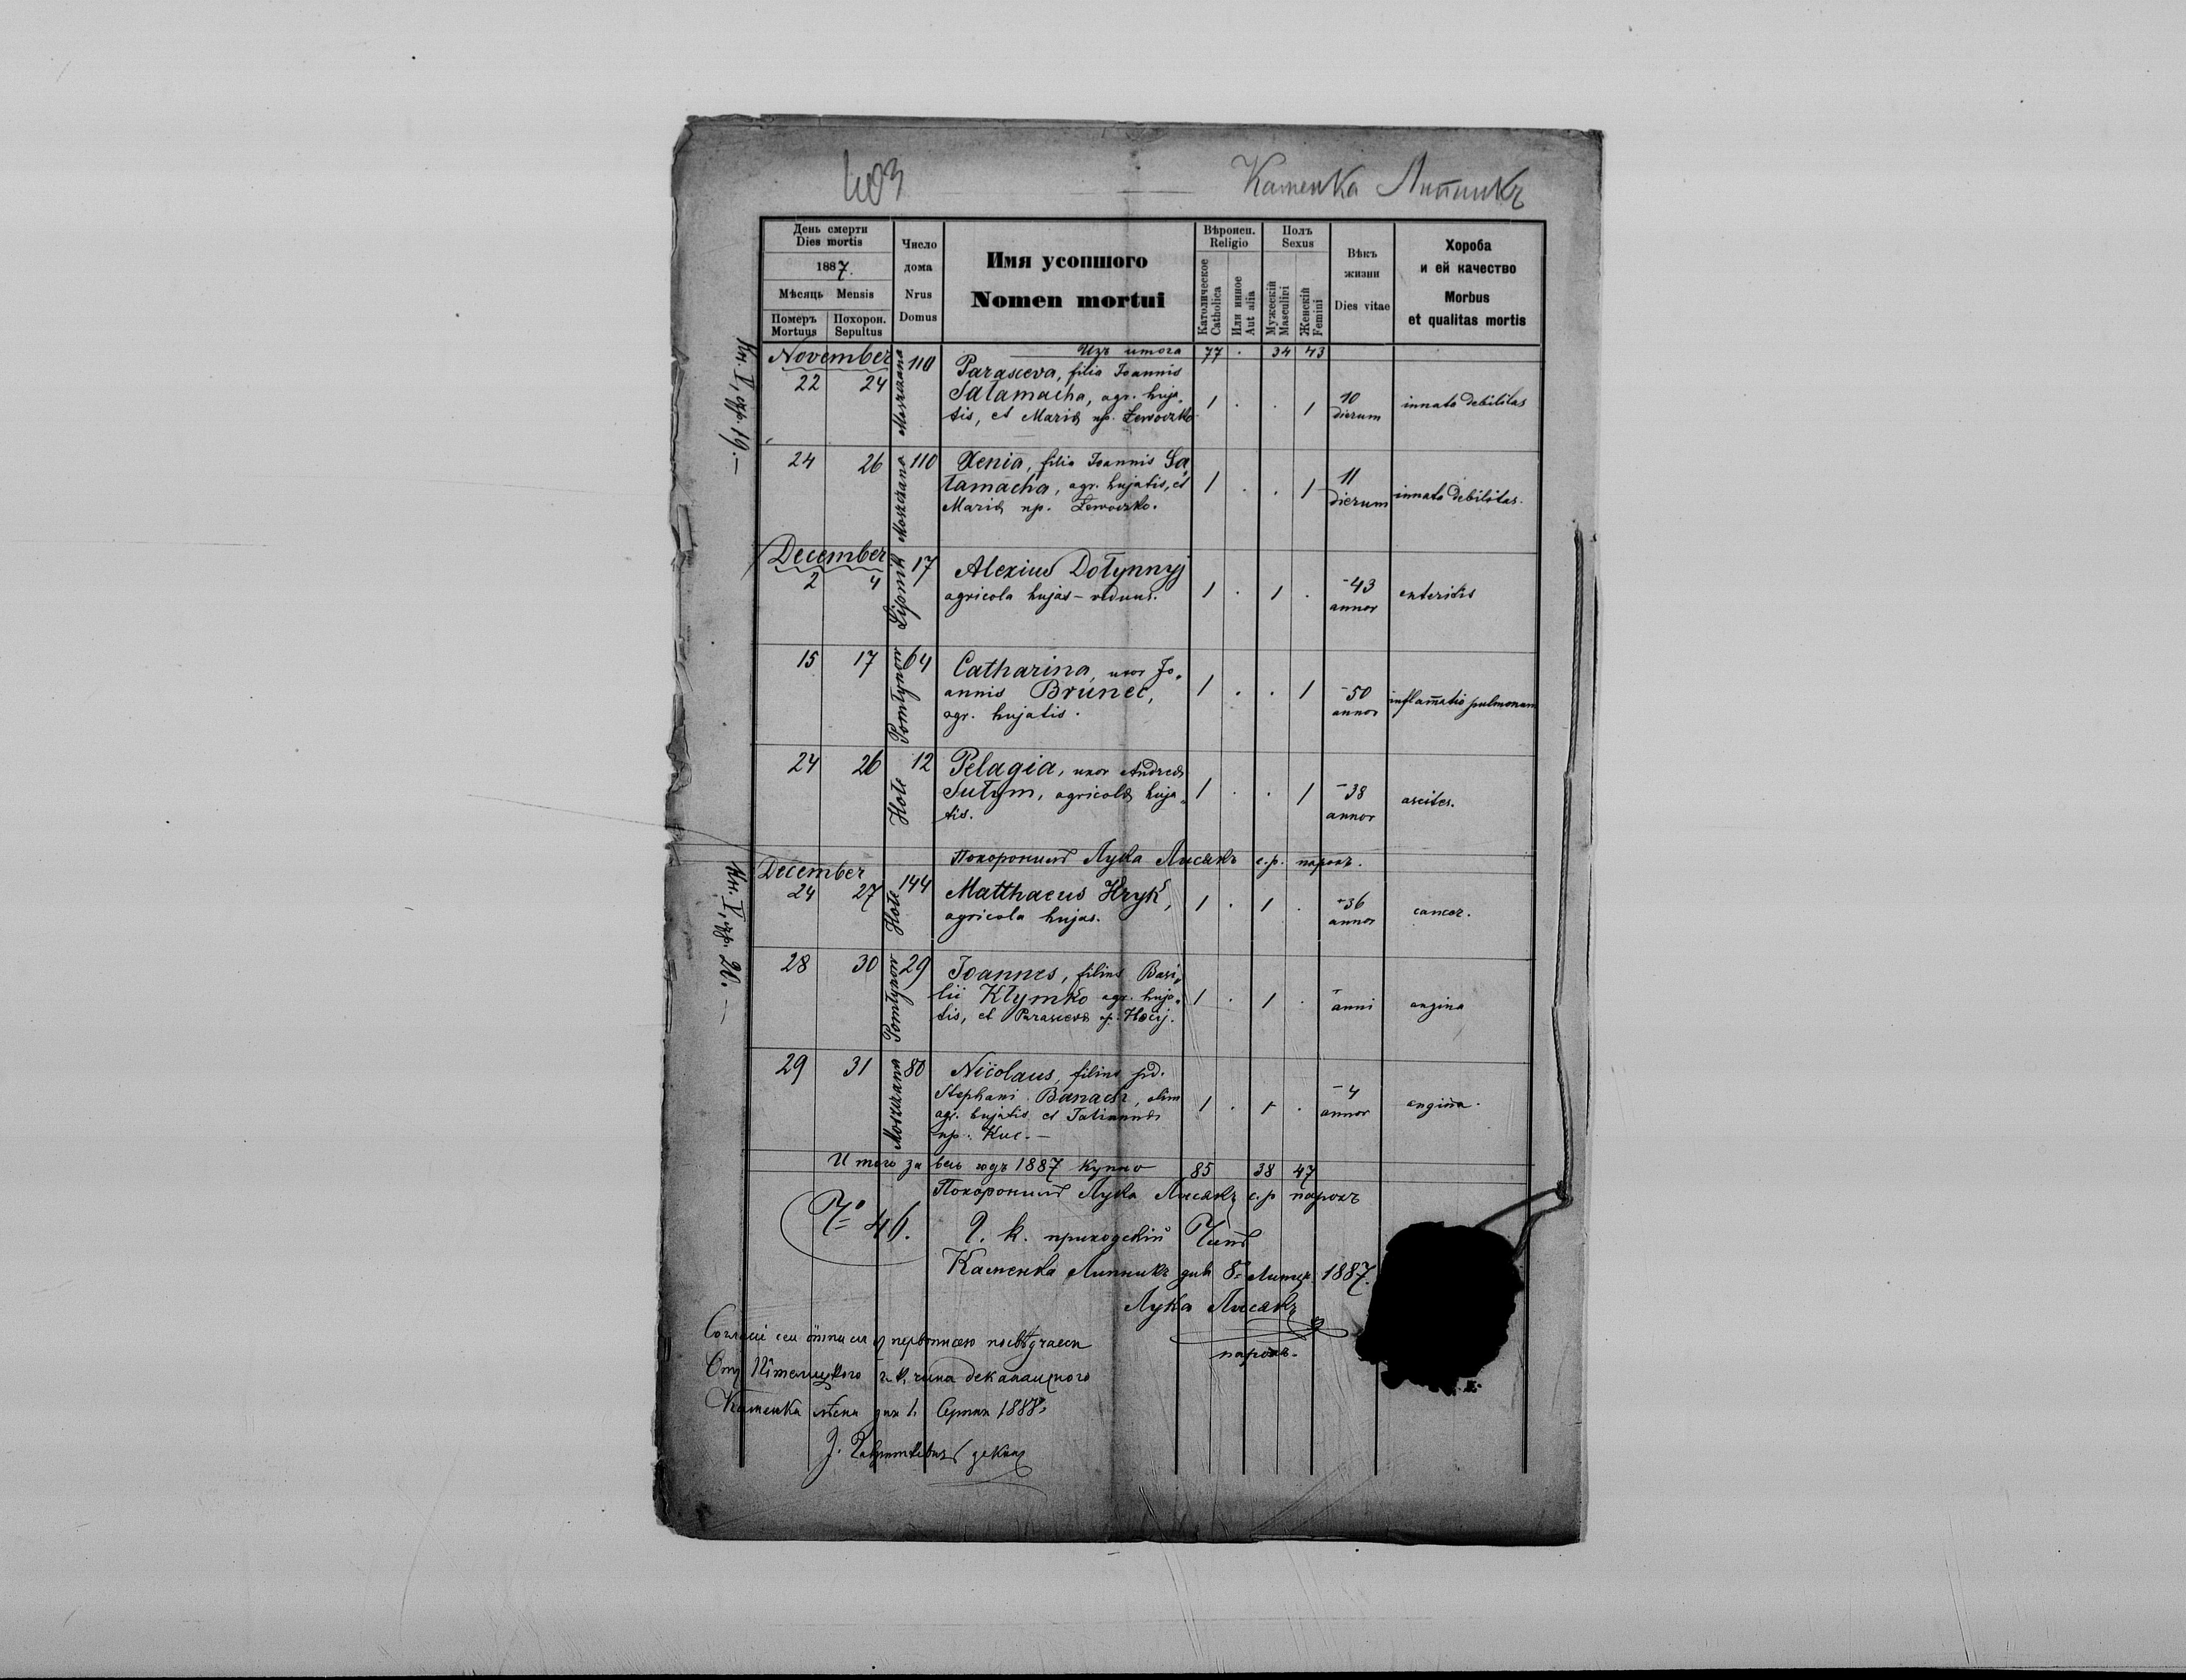 403 Каменка Липникъ
День смерти
Dies mortis
1887.
Мѣсяць Mensis
Померъ Похорон.
Mortuus Sepultus
Число
дома
Nrus
Domus
Имя усопшого
Nomen mortui
Вѣроисп.
Religio
Католическое
Catholica
Или инное
Aut alia
Полъ
Sexus
Мужескій
Masculini
Женскій
Femini
Вѣкъ
жизни
Dies vitae
Хороба
и ей качество
Morbus
et qualitas mortis
Кн. V, стр. 19.—
Изъ итога 77 . 34 43
November
22 24 Moszczana 110 Parasceva, filia Joannis
Sałamacha, agr. huja-
tis, et Mariæ np. Lewoczko. 1 . . 1 10 dierum innata debilitas
24 26 Moszczana 110 Xenia, filia Joannis Sa-
łamacha, agr. hujatis, et
Mariæ np. Lewoczko. 1 . . 1 11 dierum innata debilitas.
December
2 4 Lipnik 17 Alexius Dołynnyj
agricola hujas – viduus. 1 . 1 . 43 annor enteritis
15 17 Pomłynow 64 Catharina, uxor Jo-
annis Brunec,
agr. hujatis. 1 . . 1 50 annor inflam̄atio pulmonum
24 26 Hole 12 Pelagia, uxor Andreæ
Sułym, agricolæ huja-
tis. 1 . . 1 38 annor ascites.
Похоронилъ Лука Лисакъ с.р. парохъ.
Кн. V, стр. 20.—
December
24 27 Hole 144 Matthaeus Hryk,
agricola hujas. 1 . 1 . 36 annor cancer.
28 30 Pomłynow 29 Joannes, filius Basi-
lii Kłymko agr. huja-
tis, et Parascevæ 1 . 1 . anni angina
29 31 Moszczana 80 Nicolaus, filius
Stephani Banach, olim
agr. hujatis et Tatiannæ
np. Kuc.— 1 . 1 . 4 annor angina.
Итого за весь годъ 1887 купно 85 38 47
Похоронилъ Лука Лисакъ с.р парохъ
№ 46. Г. к. приходскій Чинъ
Каменка Липникъ дня 8 1887.
Лука Лисакъ
парохъ.
Согласіе сеи съ первописею посвѣдчаеся
Отъ г. к. чина деканального
Каменка дня 1. Серпня 1888
декан